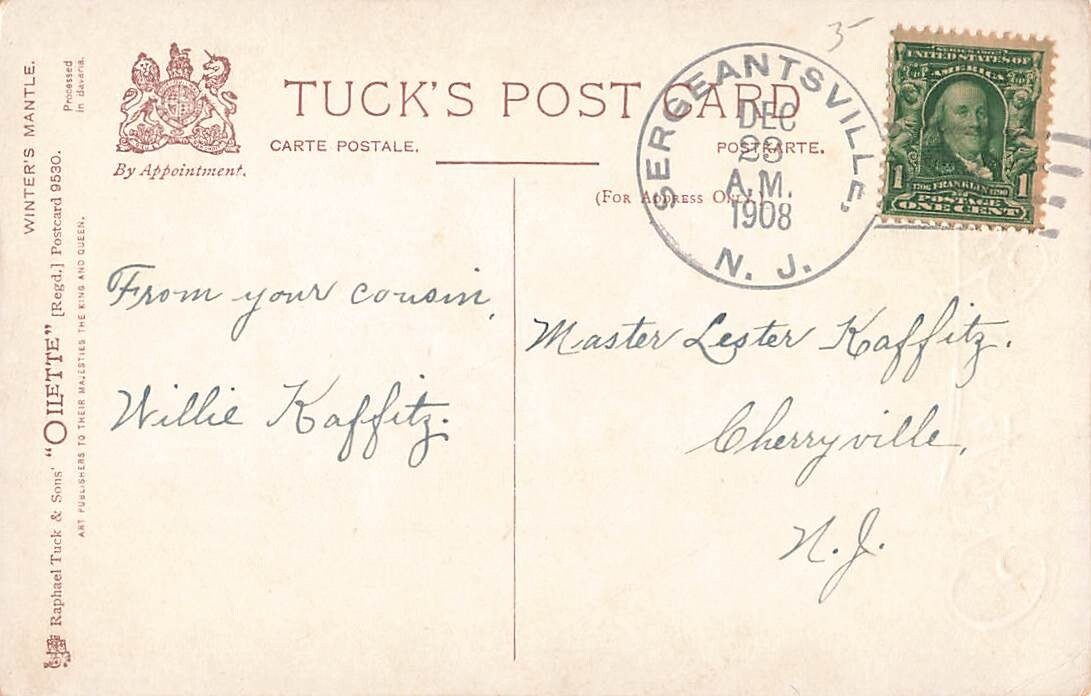 WINTER'S MANTLE.
Processed
in Bavaria.
Raphael Tuck & Sons' "OILETTE" [Regd.] Postcard 9530.
ART PUBLISHERS TO THEIR MAJESTIES THE KING AND QUEEN.
By Appointment.
TUCK'S POST CARD
CARTE POSTALE.
POSTKARTE.
(FOR ADDRESS ONLY.)
SERGEANTSVILLE,
DEC
23
A.M.
1908
N. J.
5
SERIES 1902
UNITED STATES OF
AMERICA
1706 FRANKLIN 1790
1 POSTAGE 1
ONE CENT
From your cousin,
Willie Kaffitz.
Master Lester Kaffitz.
Cherryville,
N. J.